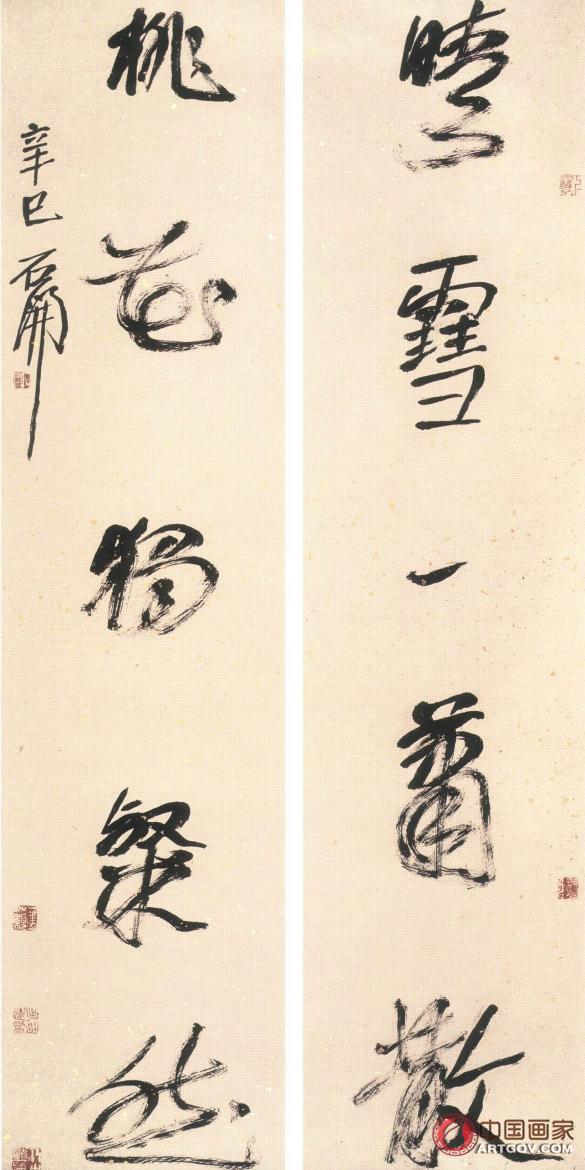 晴雪一蕭散
桃花獨粲然
辛巳 石開
中国画家
ARTGOV.COM